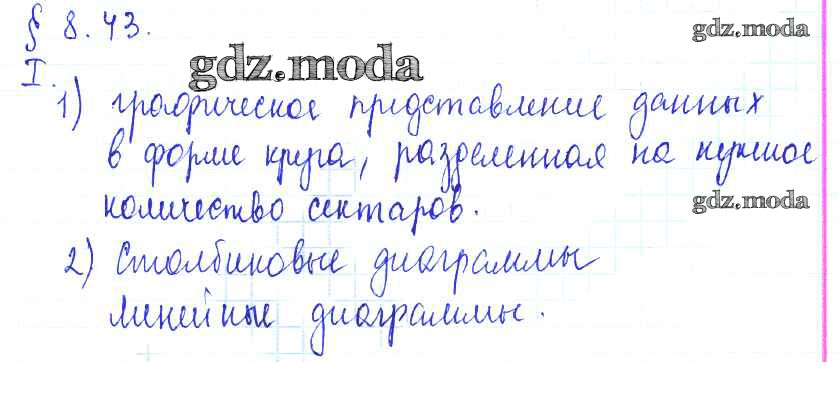 § 8.43.
gdz.moda
I.
gdz.moda
1) графическое представление данных
в форме круга, разделенная на нужное
количество сектаров.
gdz.moda
2) Столбиковые диаграммы
линейные диаграммы.